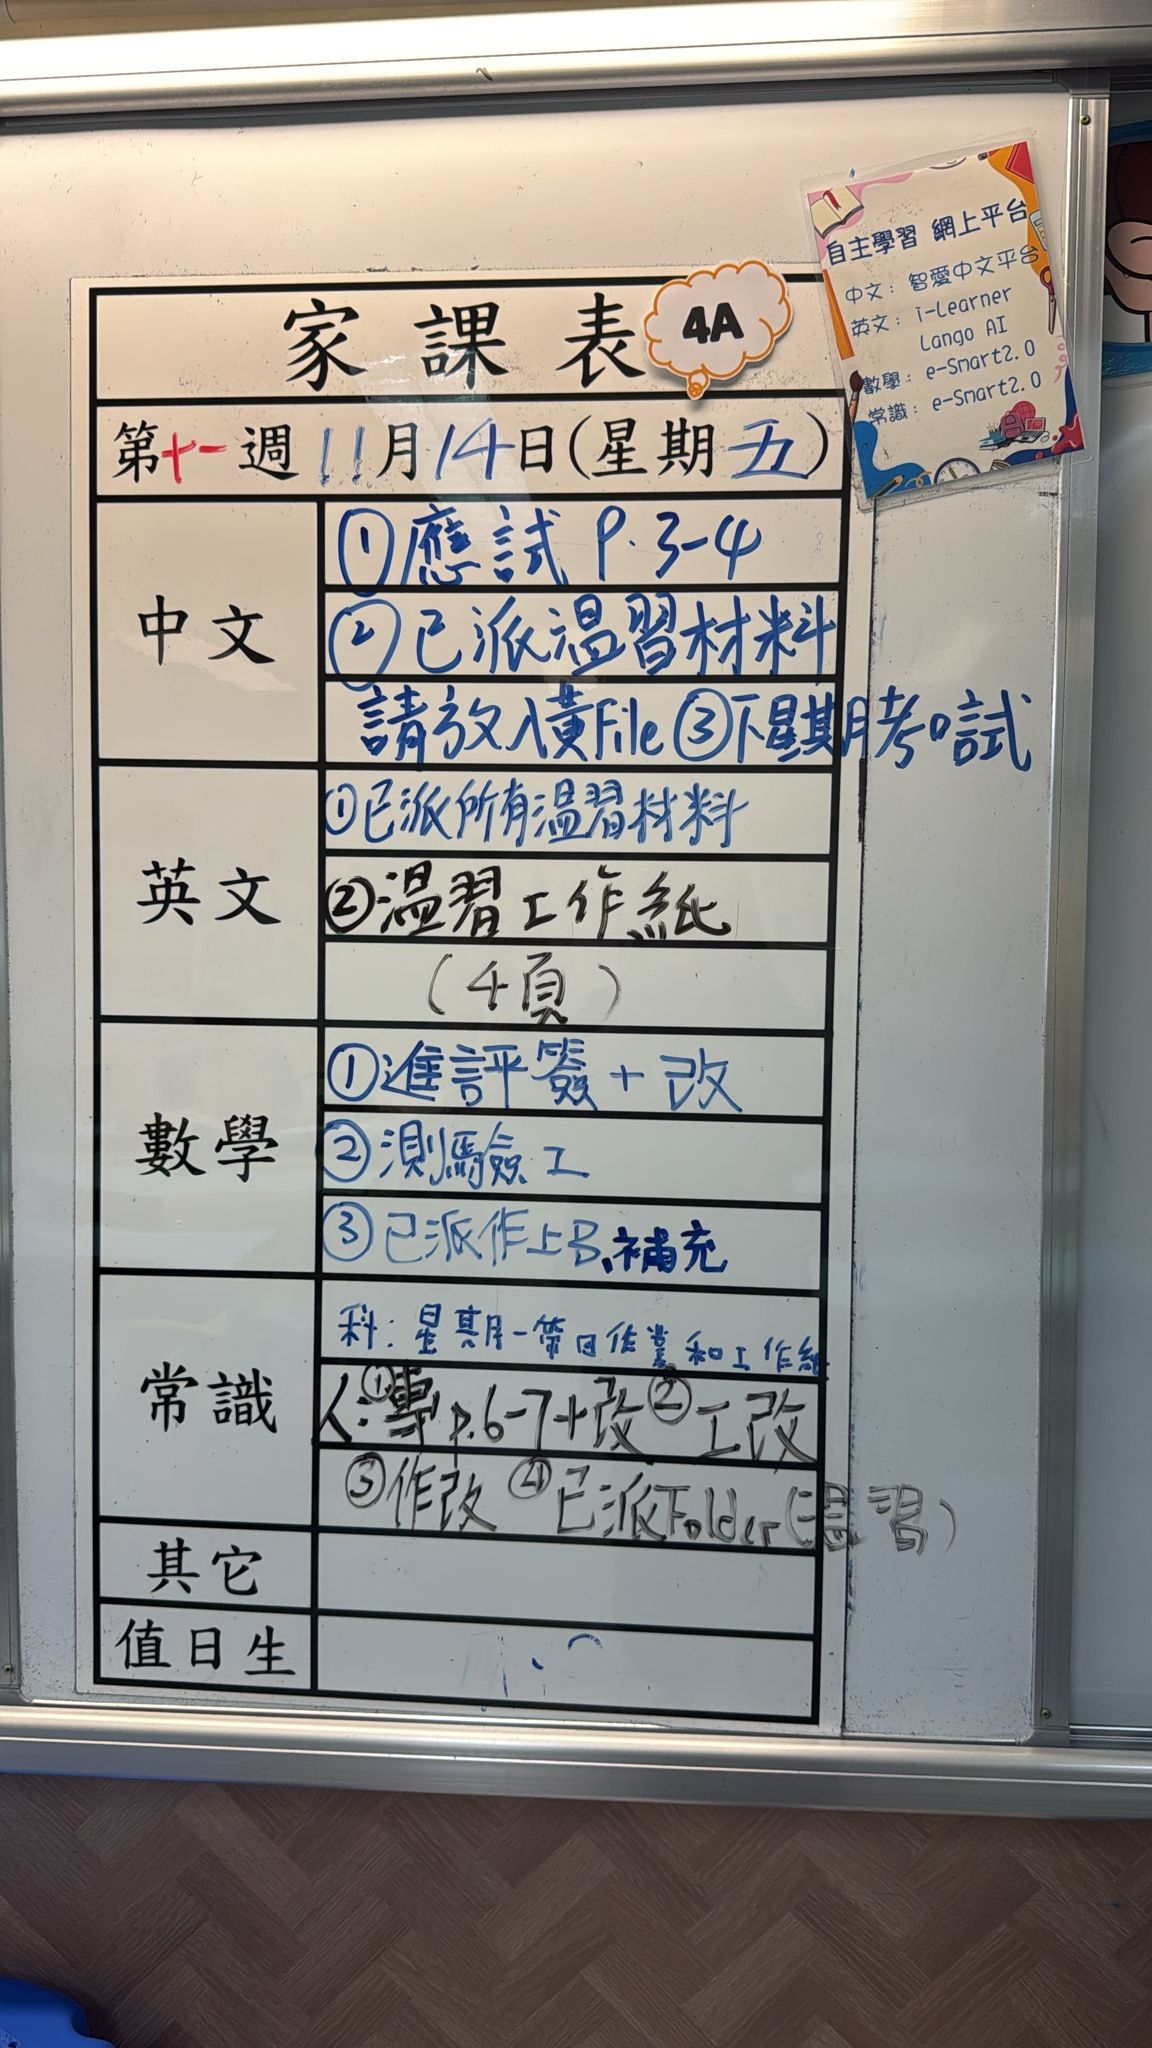 家課表 4A
自主學習 網上平台
中文：智愛中文平台
英文：i-Learner
Lango AI
數學：e-Smart2.0
常識：e-Smart2.0
第十一週 11月14日(星期五)
中文
①應試 P.3-4
②已派温習材料
請放入黃File ③下星期考口試
英文
①已派所有温習材料
②温習工作紙
(4頁)
數學
①進評簽+改
②測驗工
③已派作上B、補充
常識
科：星期一帶回作業和工作紙
人：①專p.6-7+改 ②工改
③作改 ④已派Folder(温習)
其它
值日生